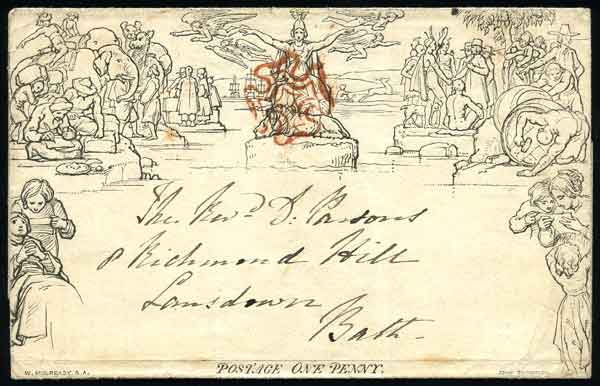 The Revd. D. Parsons
8 Richmond Hill
Lansdown
Bath
POSTAGE ONE PENNY.
W. MULREADY, R.A.
JOHN THOMPSON